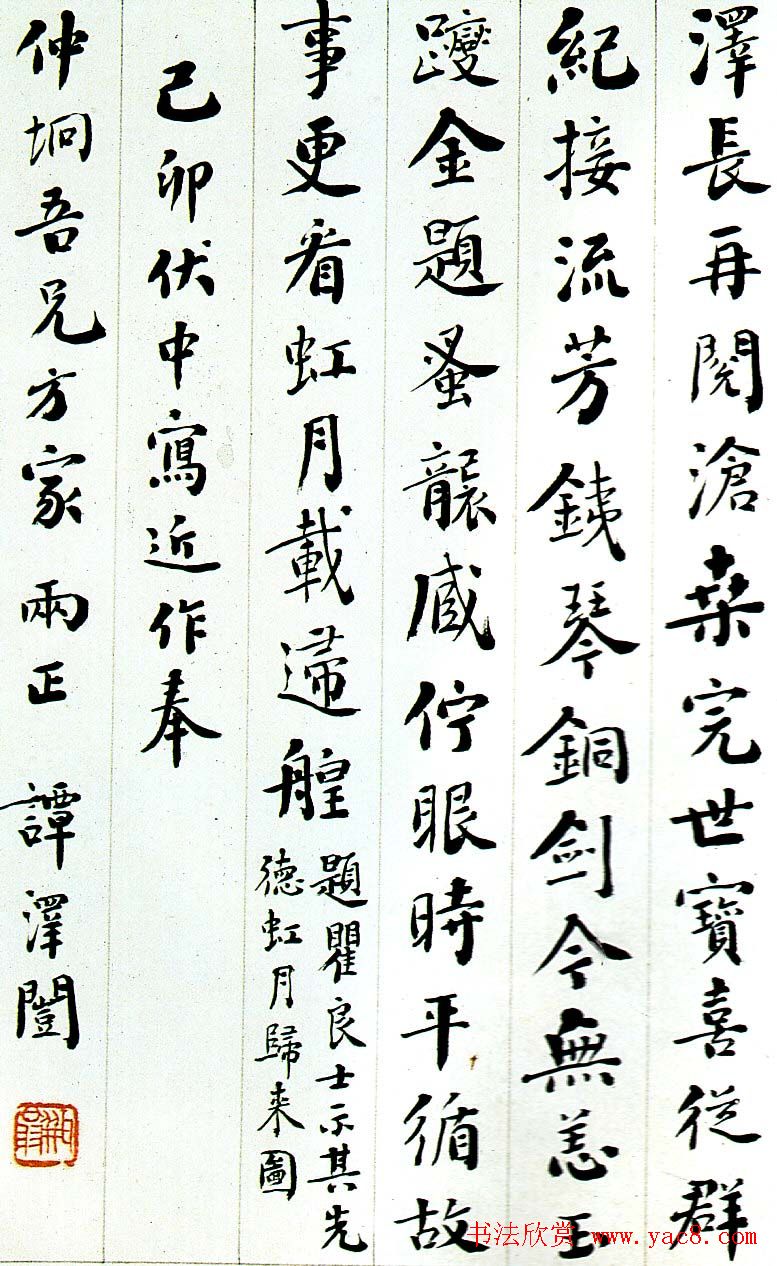 澤長再閱滄桒完世寶喜從群
紀接流芳銕琴銅劍今無恙玉
躞金題蚤襲藏佇眼時平循故
事更看虹月載歸艎
題瞿良士示其先
德虹月歸来圖
己卯伏中寫近作奉
仲坰吾兄方家兩正 譚澤闓
书法欣赏 www.yac8.com